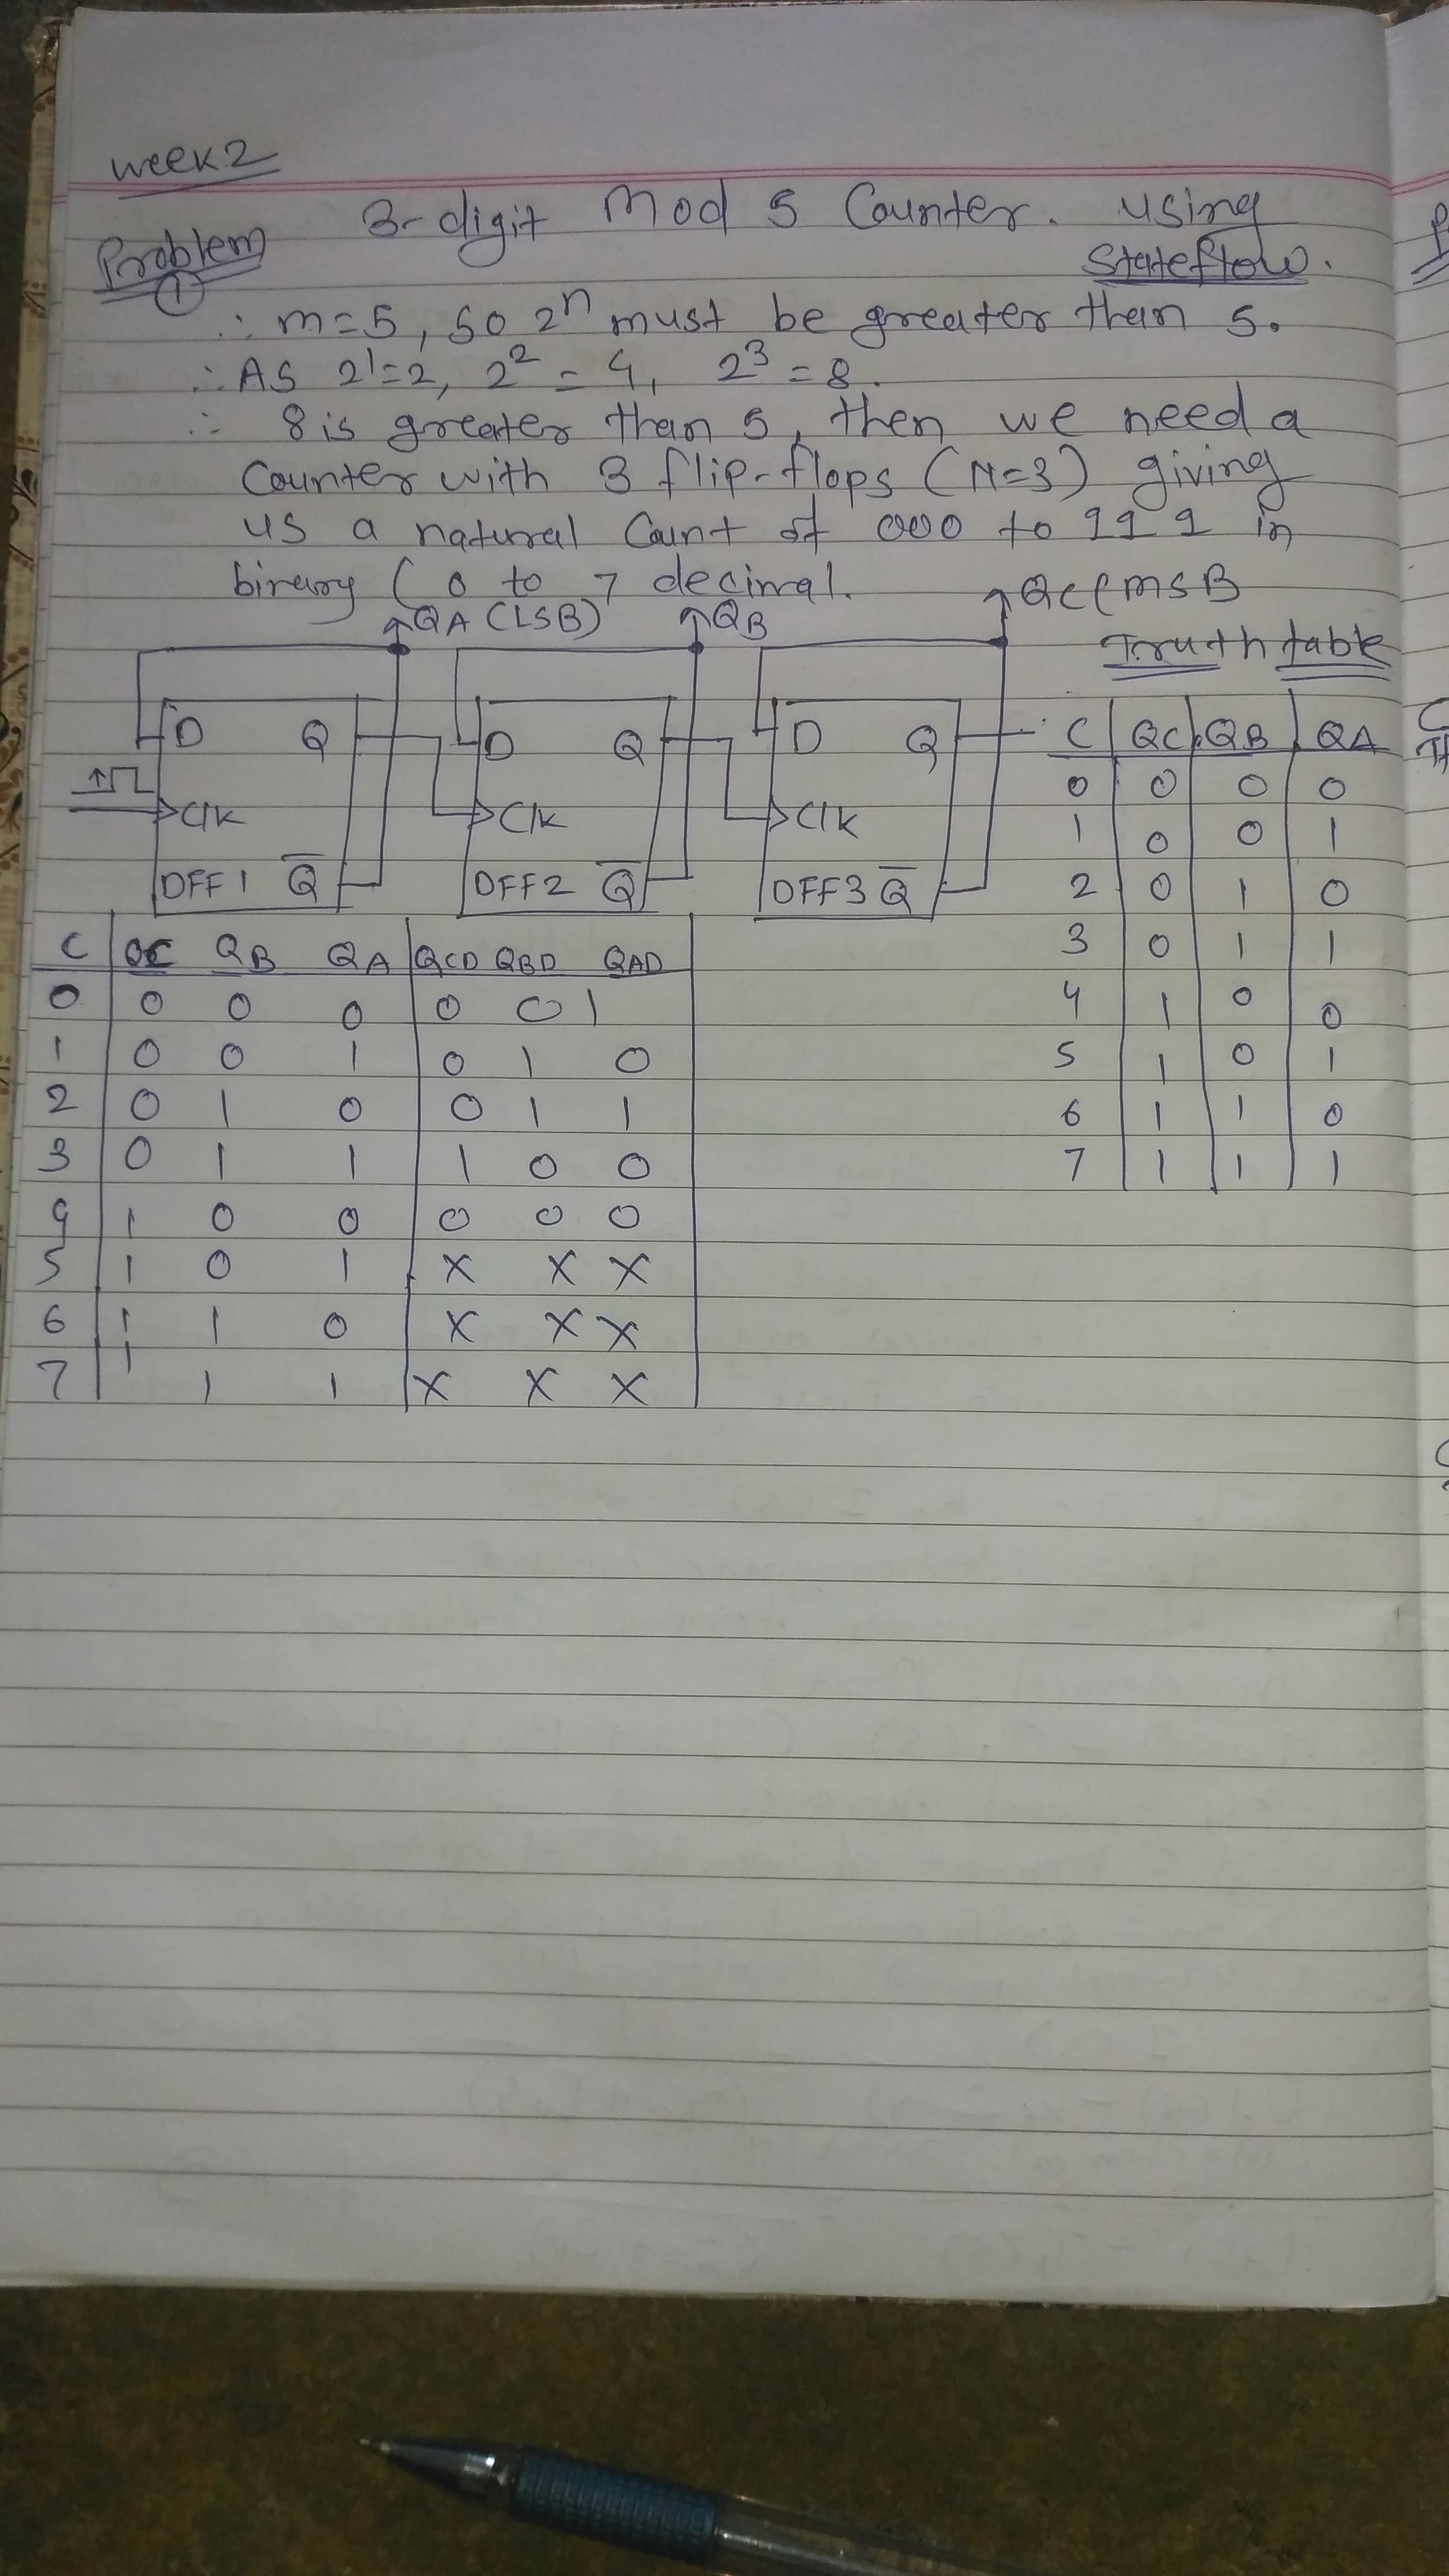 week2
Problem
①
3-digit Mod 5 Counter. using
Stateflow.
∴ m=5, so 2^n must be greater than 5.
∴ As 2^1=2, 2^2=4, 2^3=8.
∴ 8 is greater than 5, then we need a
counter with 3 flip-flops (N=3) giving
us a natural Count of 000 to 111 in
binary ( 0 to 7 decimal.
QA (LSB) QB QC(MSB
D Q D Q D Q
Clk Clk Clk
DFF1 Q̅ DFF2 Q̅ DFF3 Q̅
Truth table
C QC QB QA
0 0 0 0
1 0 0 1
2 0 1 0
3 0 1 1
4 1 0 0
5 1 0 1
6 1 1 0
7 1 1 1
C QC QB QA QCD QBD QAD
0 0 0 0 0 0 1
1 0 0 1 0 1 0
2 0 1 0 0 1 1
3 0 1 1 1 0 0
4 1 0 0 0 0 0
5 1 0 1 X X X
6 1 1 0 X X X
7 1 1 1 X X X